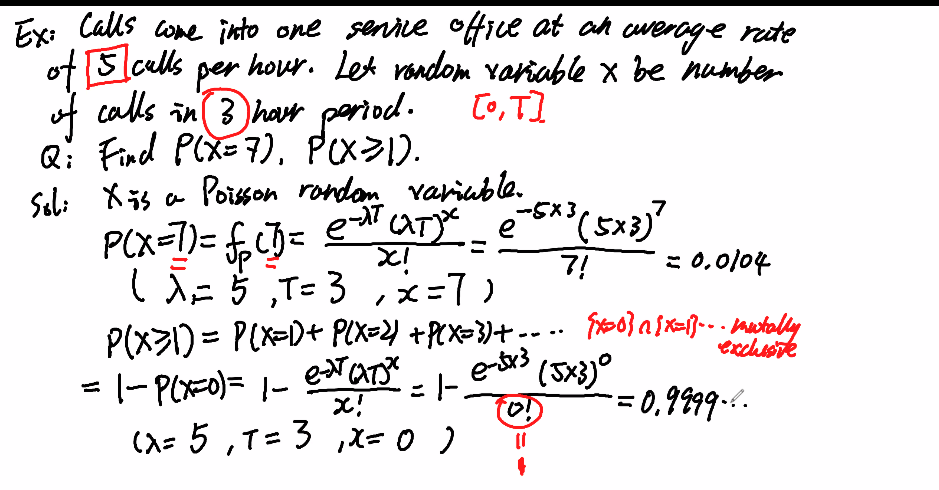 Ex: Calls come into one service office at an average rate
of 5 calls per hour. Let random variable X be number
of calls in 3 hour period. [0,T]
Q: Find P(X=7), P(X≥1).
Sol: X is a Poisson random variable.
P(X=7)= f_p(7)= e^{-λT}(λT)^x / x! = e^{-5×3}(5×3)^7 / 7! = 0.0104
( λ = 5 , T= 3 , x=7 )
P(X≥1) = P(X=1)+ P(X=2) +P(X=3)+ .... {X=0}∩{X=1}... mutally
exclusive
= 1-P(X=0)= 1- e^{-λT}(λT)^x / x! = 1- e^{-5×3}(5×3)^0 / 0! = 0.9999...
(λ= 5 , T= 3 , x= 0 ) =
1